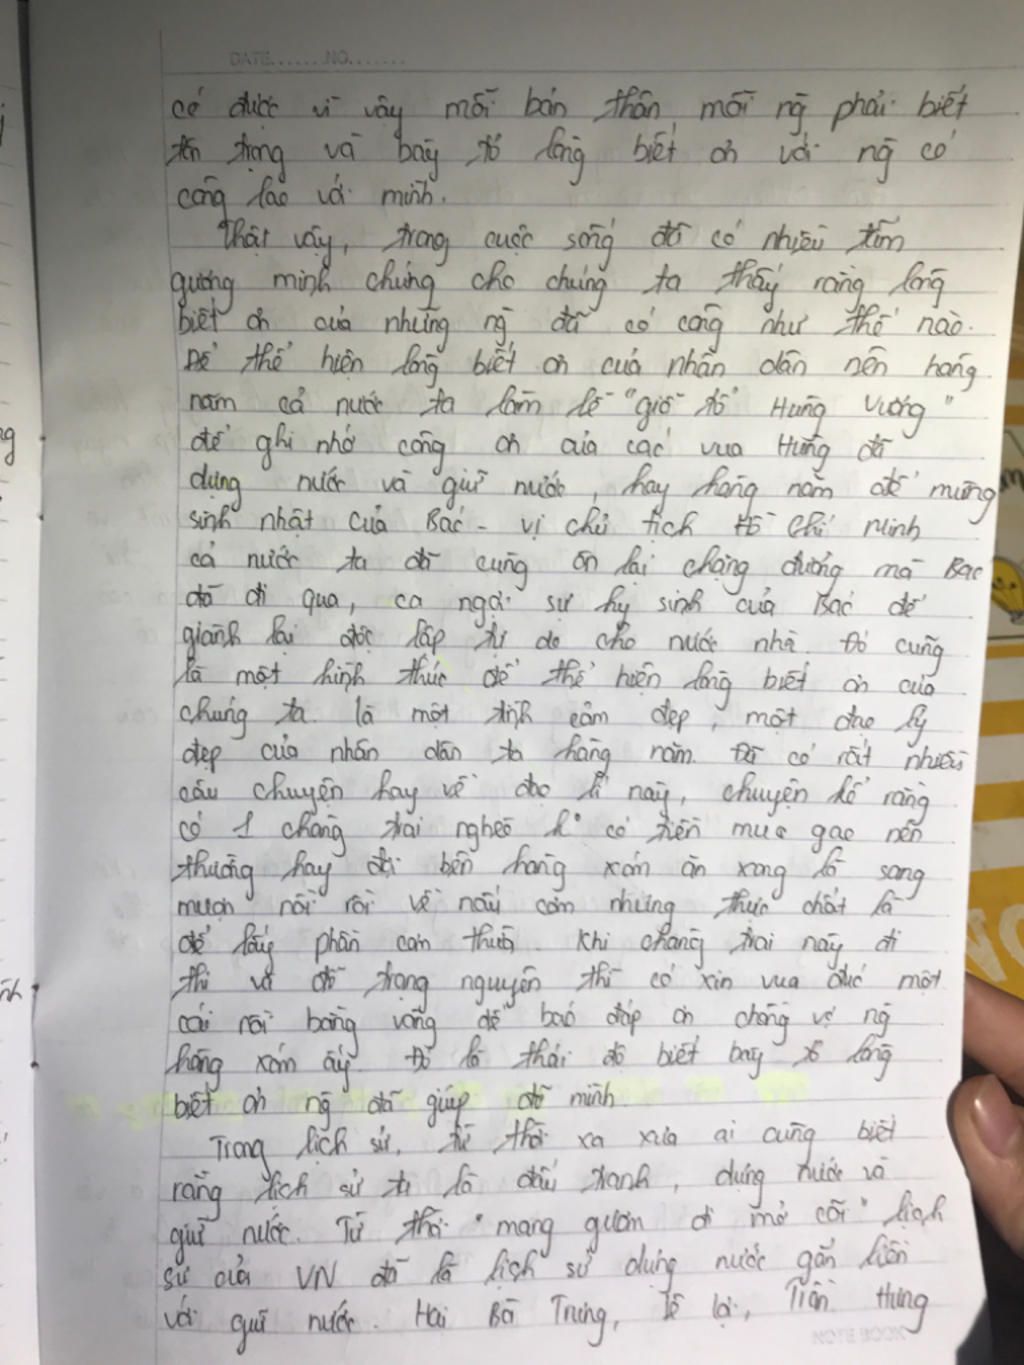 DATE.......NO.......
có được vì vậy mỗi bản thân, mỗi ng phải biết
tôn trọng và bày tỏ lòng biết ơn với ng có
công lao với mình.
Thật vậy, trong cuộc sống đã có nhiều tấm
gương minh chứng cho chúng ta thấy rằng lòng
biết ơn của những ng đã có công như thế nào.
Để thể hiện lòng biết ơn của nhân dân nên hàng
năm cả nước ta làm lễ "giỗ tổ Hùng Vương"
để ghi nhớ công ơn của các vua Hùng đã
dựng nước và giữ nước, hay hằng năm để mừng
sinh nhật của Bác - vị chủ tịch Hồ Chí Minh
cả nước ta đã cùng ôn lại chặng đường mà Bác
đã đi qua, ca ngợi sự hy sinh của Bác để
giành lại độc lập tự do cho nước nhà. Đó cũng
là một hình thức để thể hiện lòng biết ơn của
chúng ta là một tình cảm đẹp, một đạo lý
đẹp của nhân dân ta hàng năm. Đã có rất nhiều
câu chuyện hay về đạo lí này, chuyện kể rằng
có 1 chàng trai nghèo k° có tiền mua gạo nên
thường hay đợi bên hàng xóm ăn xong là sang
mượn nồi rồi về nấu cơm nhưng thực chất là
để lấy phần cơm thừa. Khi chàng trai này đi
thi và đỗ trạng nguyên thì có xin vua đúc một
cái nồi bằng vàng để báo đáp ơn chồng vợ ng
hàng xóm ấy. Đó là thái độ biết bày tỏ lòng
biết ơn ng đã giúp đỡ mình.
Trong lịch sử, từ thời xa xưa ai cũng biết
rằng lịch sử ta là đấu tranh, dựng nước và
giữ nước. Từ thời "mang gươm đi mở cõi" lịch
sử của VN đã là lịch sử dựng nước gắn liền
với giữ nước. Hai Bà Trưng, Lê Lợi, Trần Hưng
NOTE BOOK